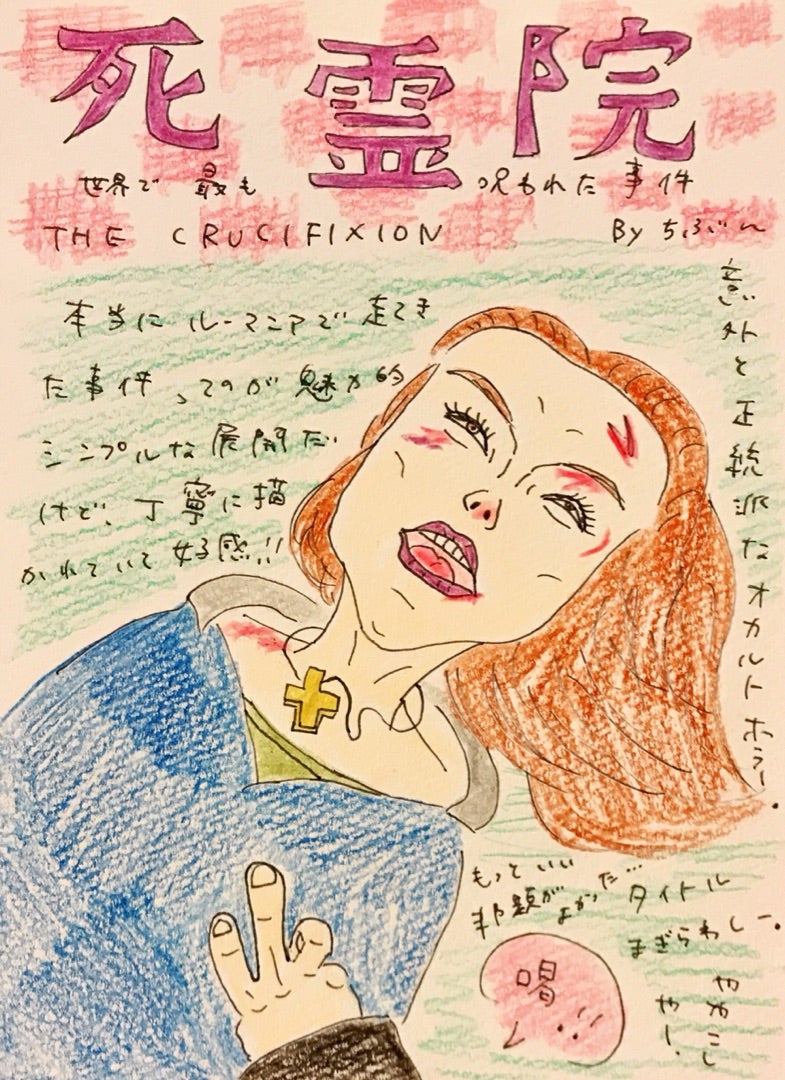 死霊院
世界で最も呪われた事件
THE CRUCIFIXION
By ちぶ〜
本当にルーマニアで起てき
た事件、ってのが魅力的
シンプルな展開だ
けど、丁寧に描
かれていて好感!!
意外と正統派なオカルトホラー。
もっといい
邦題が よかった…
タイトル
まぎらわしー。
ややこし
やー!
喝!!